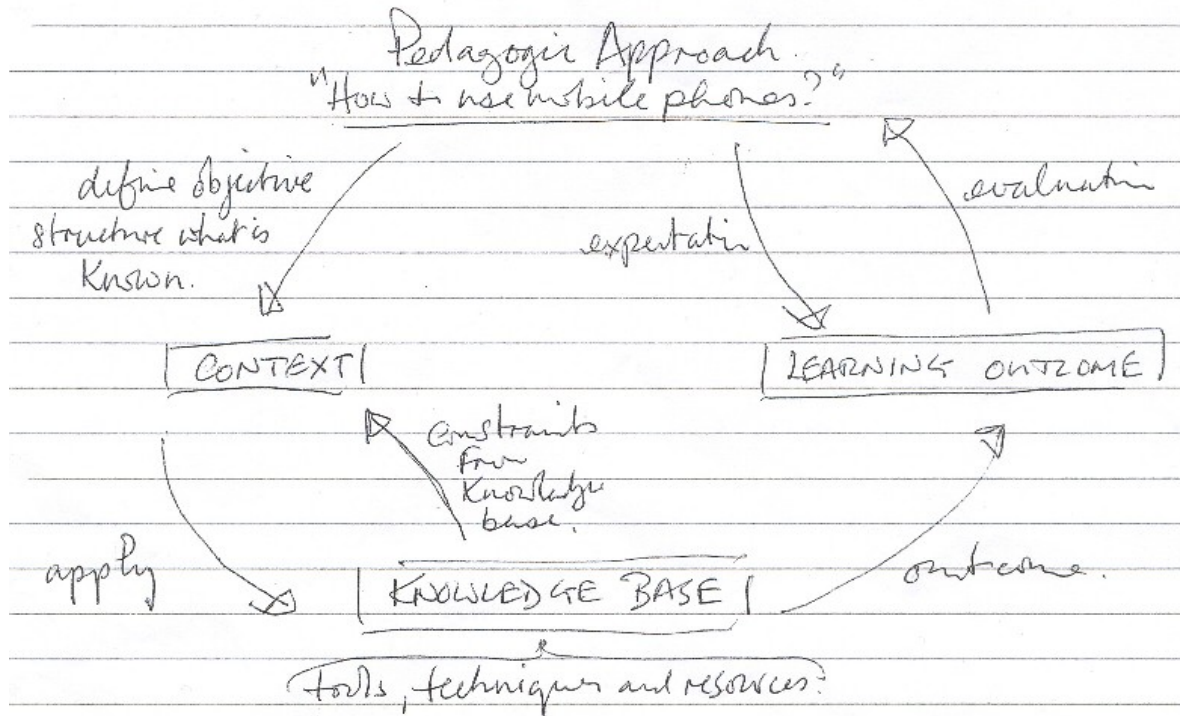 Pedagogic Approach.
"How to use mobile phones?"
define objective
structure what is
known.
expectation
evaluation
CONTEXT
LEARNING OUTCOME
constraints
from
knowledge
base.
apply
KNOWLEDGE BASE
outcome.
tools, techniques and resources.